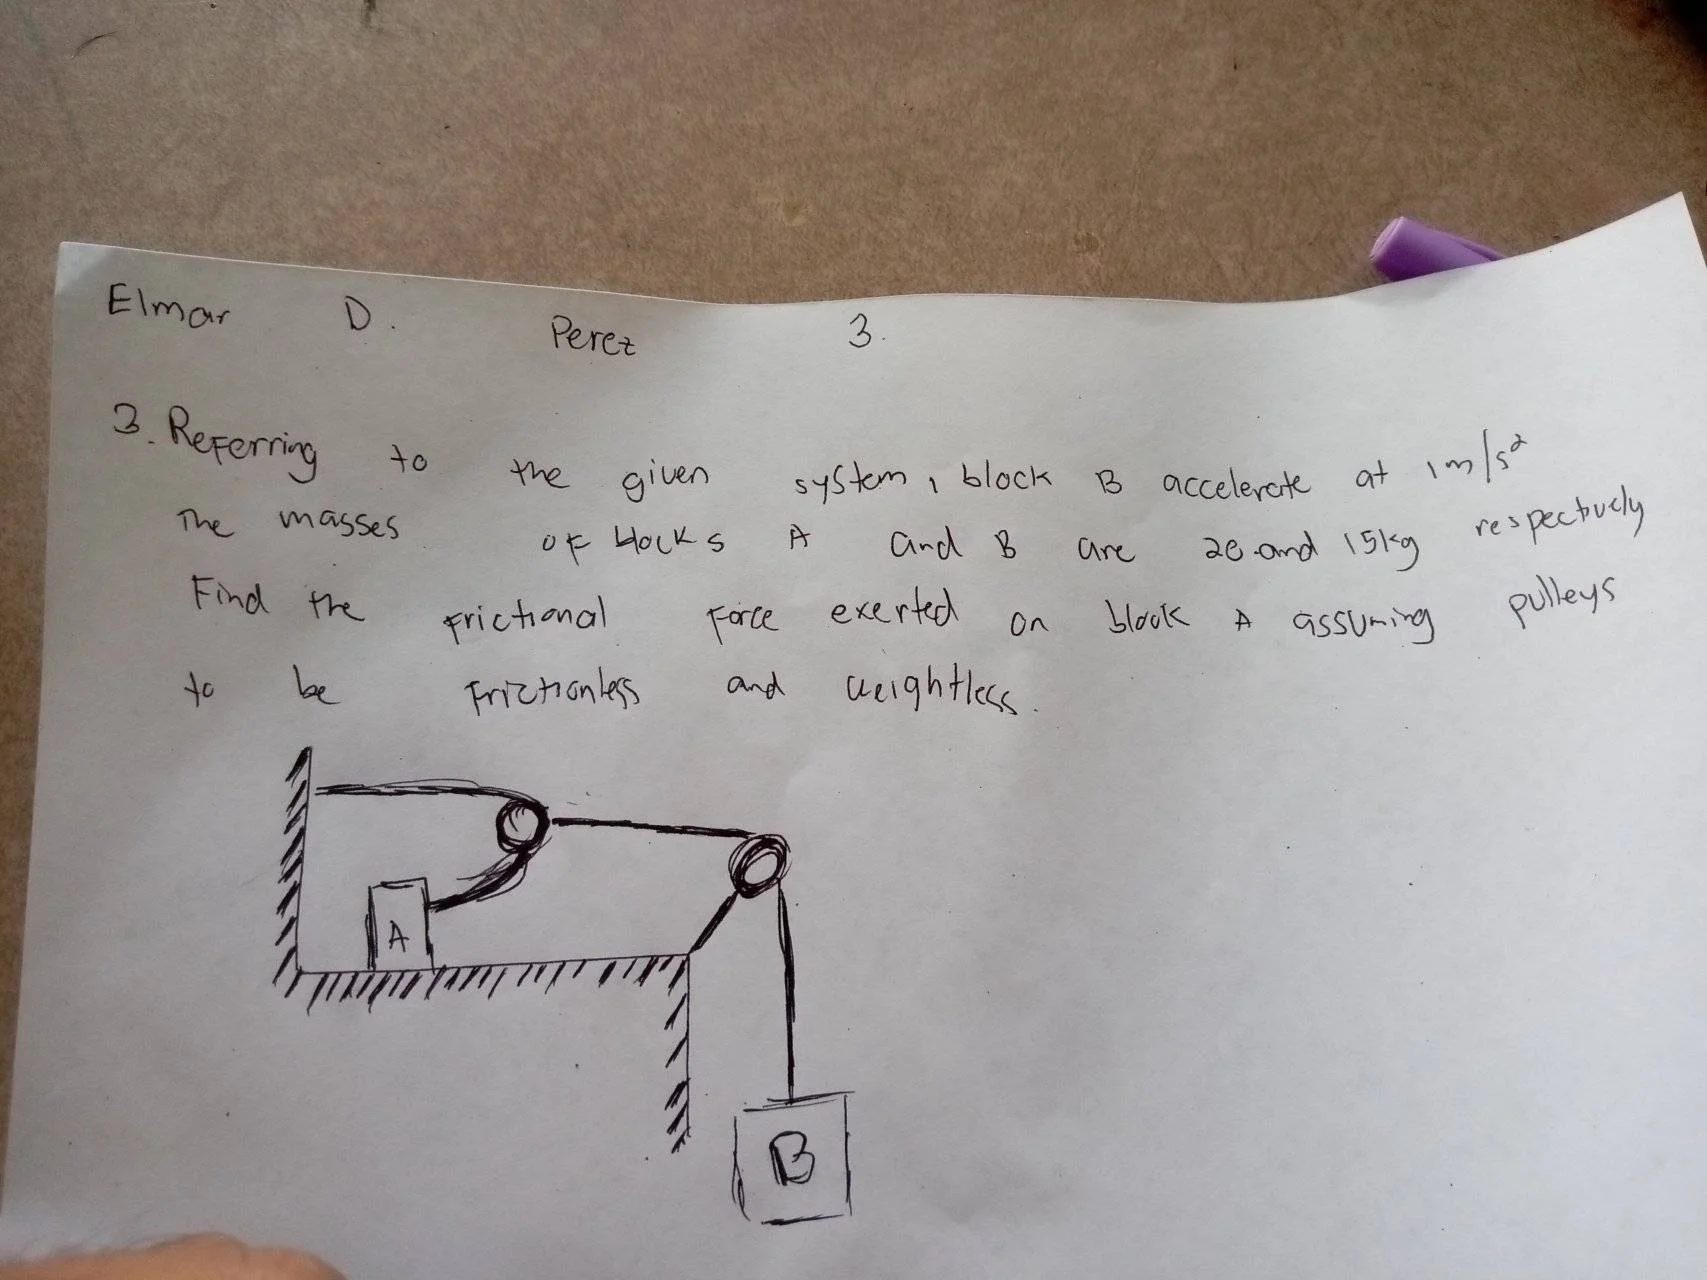 Elmar D. Perez 3.
3. Referring to the given system, block B accelerate at 1m/s²
The masses of blocks A and B are 20 and 15kg respectively
Find the frictional force exerted on block A assuming pulleys
to be frictionless and weightless.
A
B